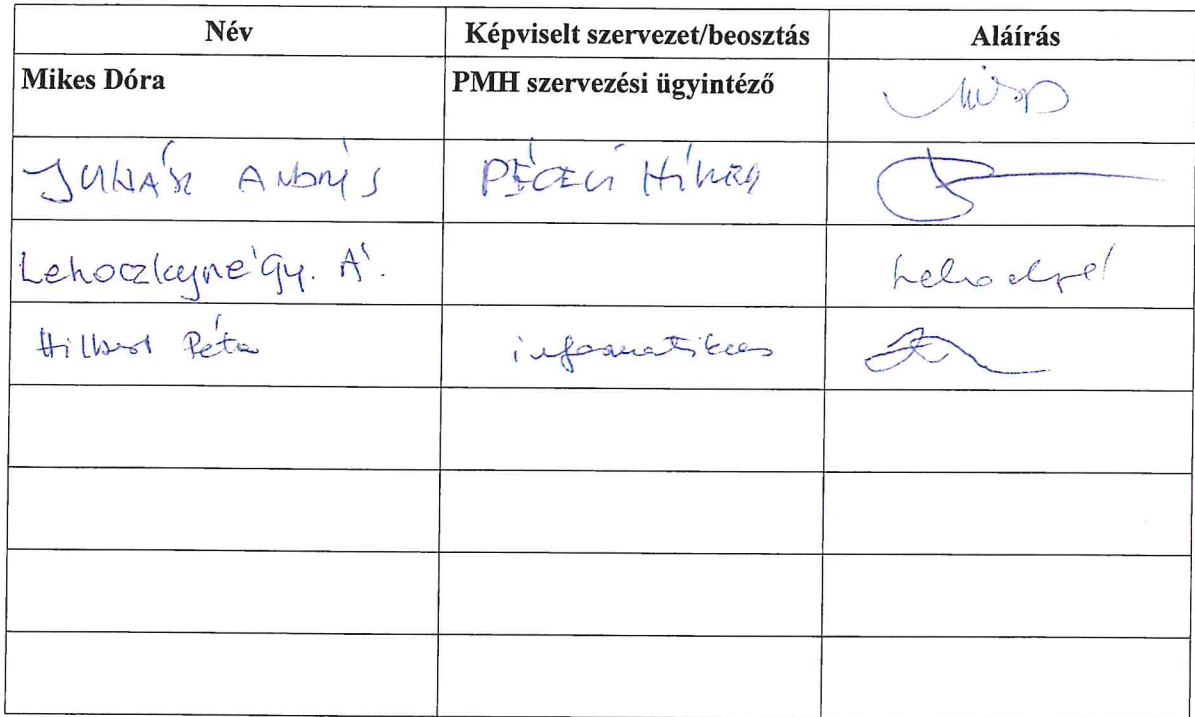 Név Képviselt szervezet/beosztás Aláírás
Mikes Dóra PMH szervezési ügyintéző
JUHÁSZ ANDRÁS PÉCELI Hírek
Lehoczkyné Gy. Á.
Péter informatikus